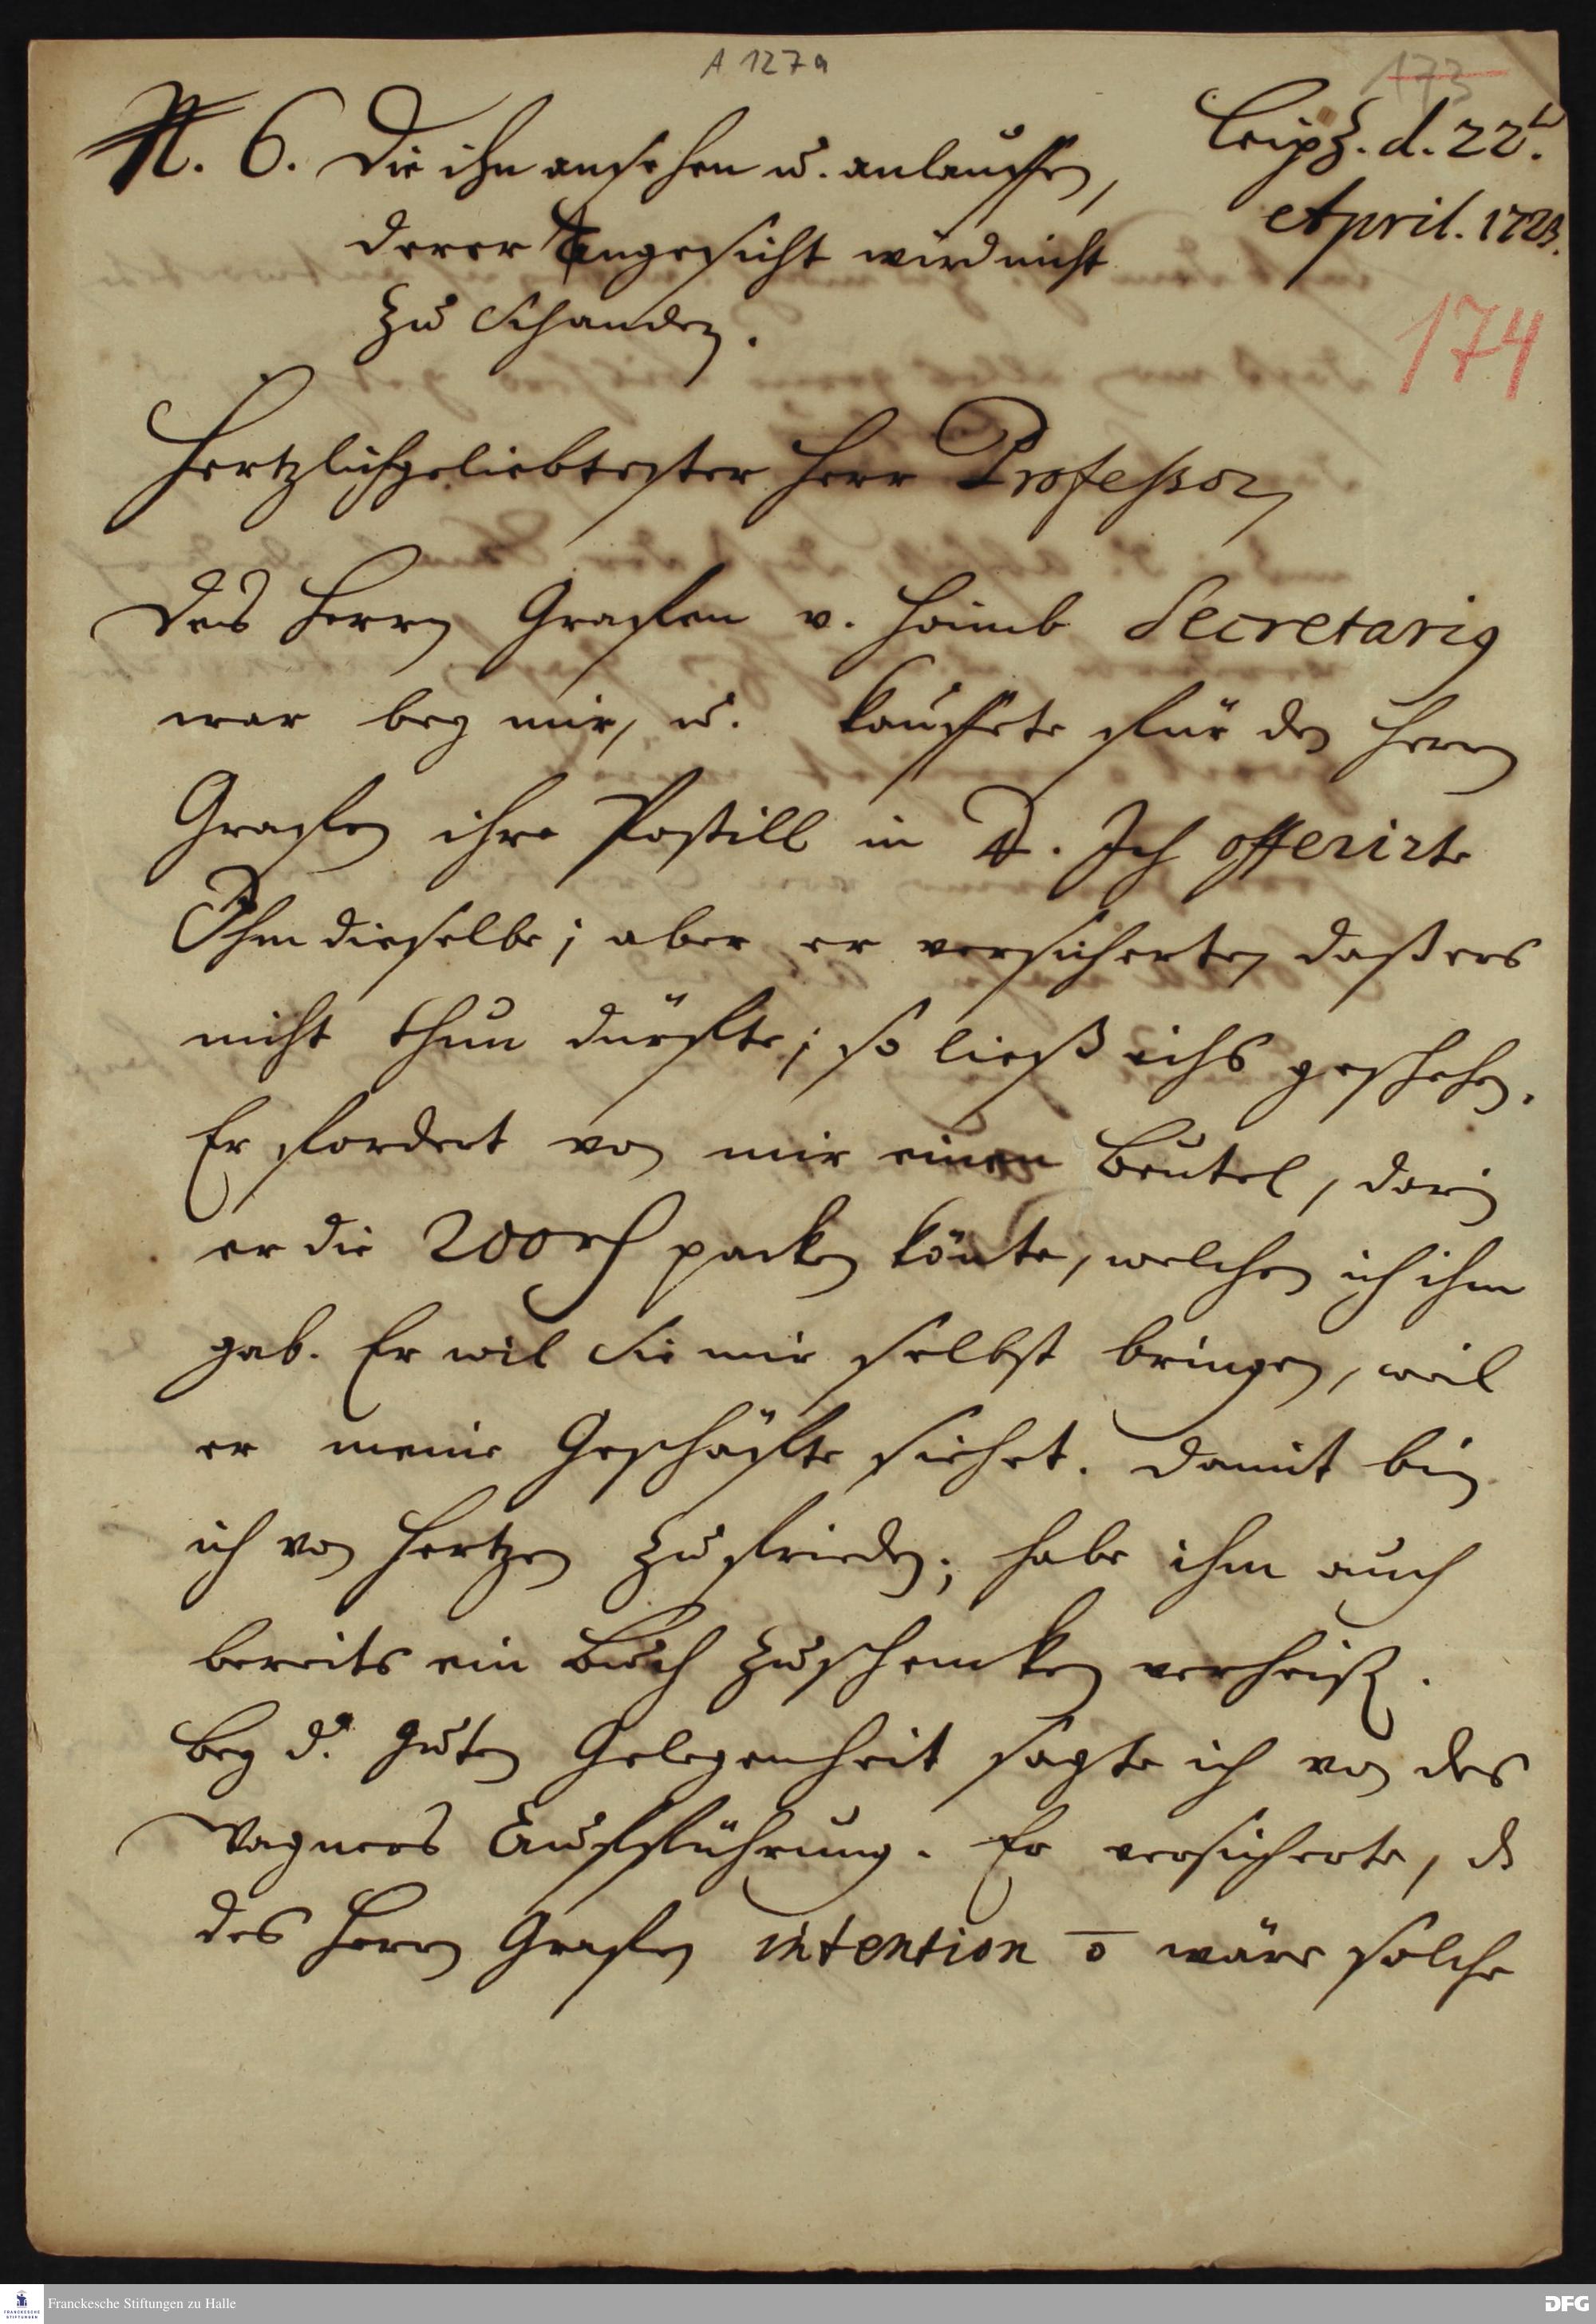 A 127a
173
N. 6. Die ihn ansehen u. anlauffen,
Leipz. d. 22t.
derer Angesicht wird nicht
April. 1723.
zu Schanden.
174
Hertzlichgeliebtester Herr Professor,
Des Herrn Grafen v. Hoimb Secretarig
war bey mir, u. kauffete für den Herrn
Grafen ihre Postill in 4. Ich offerirte
Ihm dieselbe; aber er versicherte, daß ers
nicht thun dürfte; so ließ ichs geschehen.
Er fordert von mir einen Beutel, darin
er die 200 rth packen könte, welchen ich ihm
gab. Er wil Sie mir selbst bringen, weil
er meine Geschäfte siehet. Damit bin
ich von Hertzen zufrieden; habe ihm auch
bereits ein Buch zuschencken verheiß.
Bey d. guten Gelegenheit sagte ich von des
Wagners Aufführung. Er versicherte, ds
des Herrn Grafen intention o̅ wäre solche
Franckesche Stiftungen zu Halle
DFG